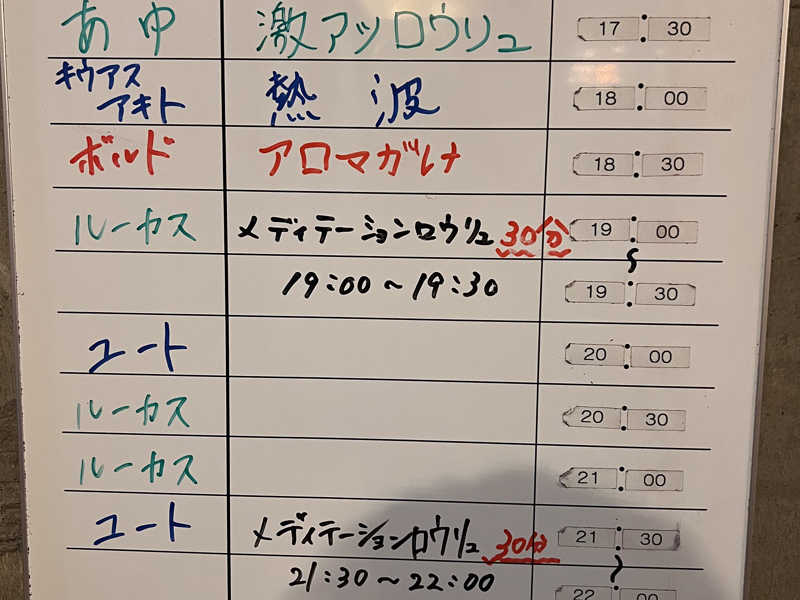 あゆ 激アツロウリュ 17:30
キウアス
アキト 熱波 18:00
ボルド アロマガルナ 18:30
ルーカス メディテーションロウリュ 30分 19:00
〜
19:00〜19:30 19:30
ユート 20:00
ルーカス 20:30
ルーカス 21:00
ユート メディテーションロウリュ 30分 21:30
〜
21:30〜22:00 22:00